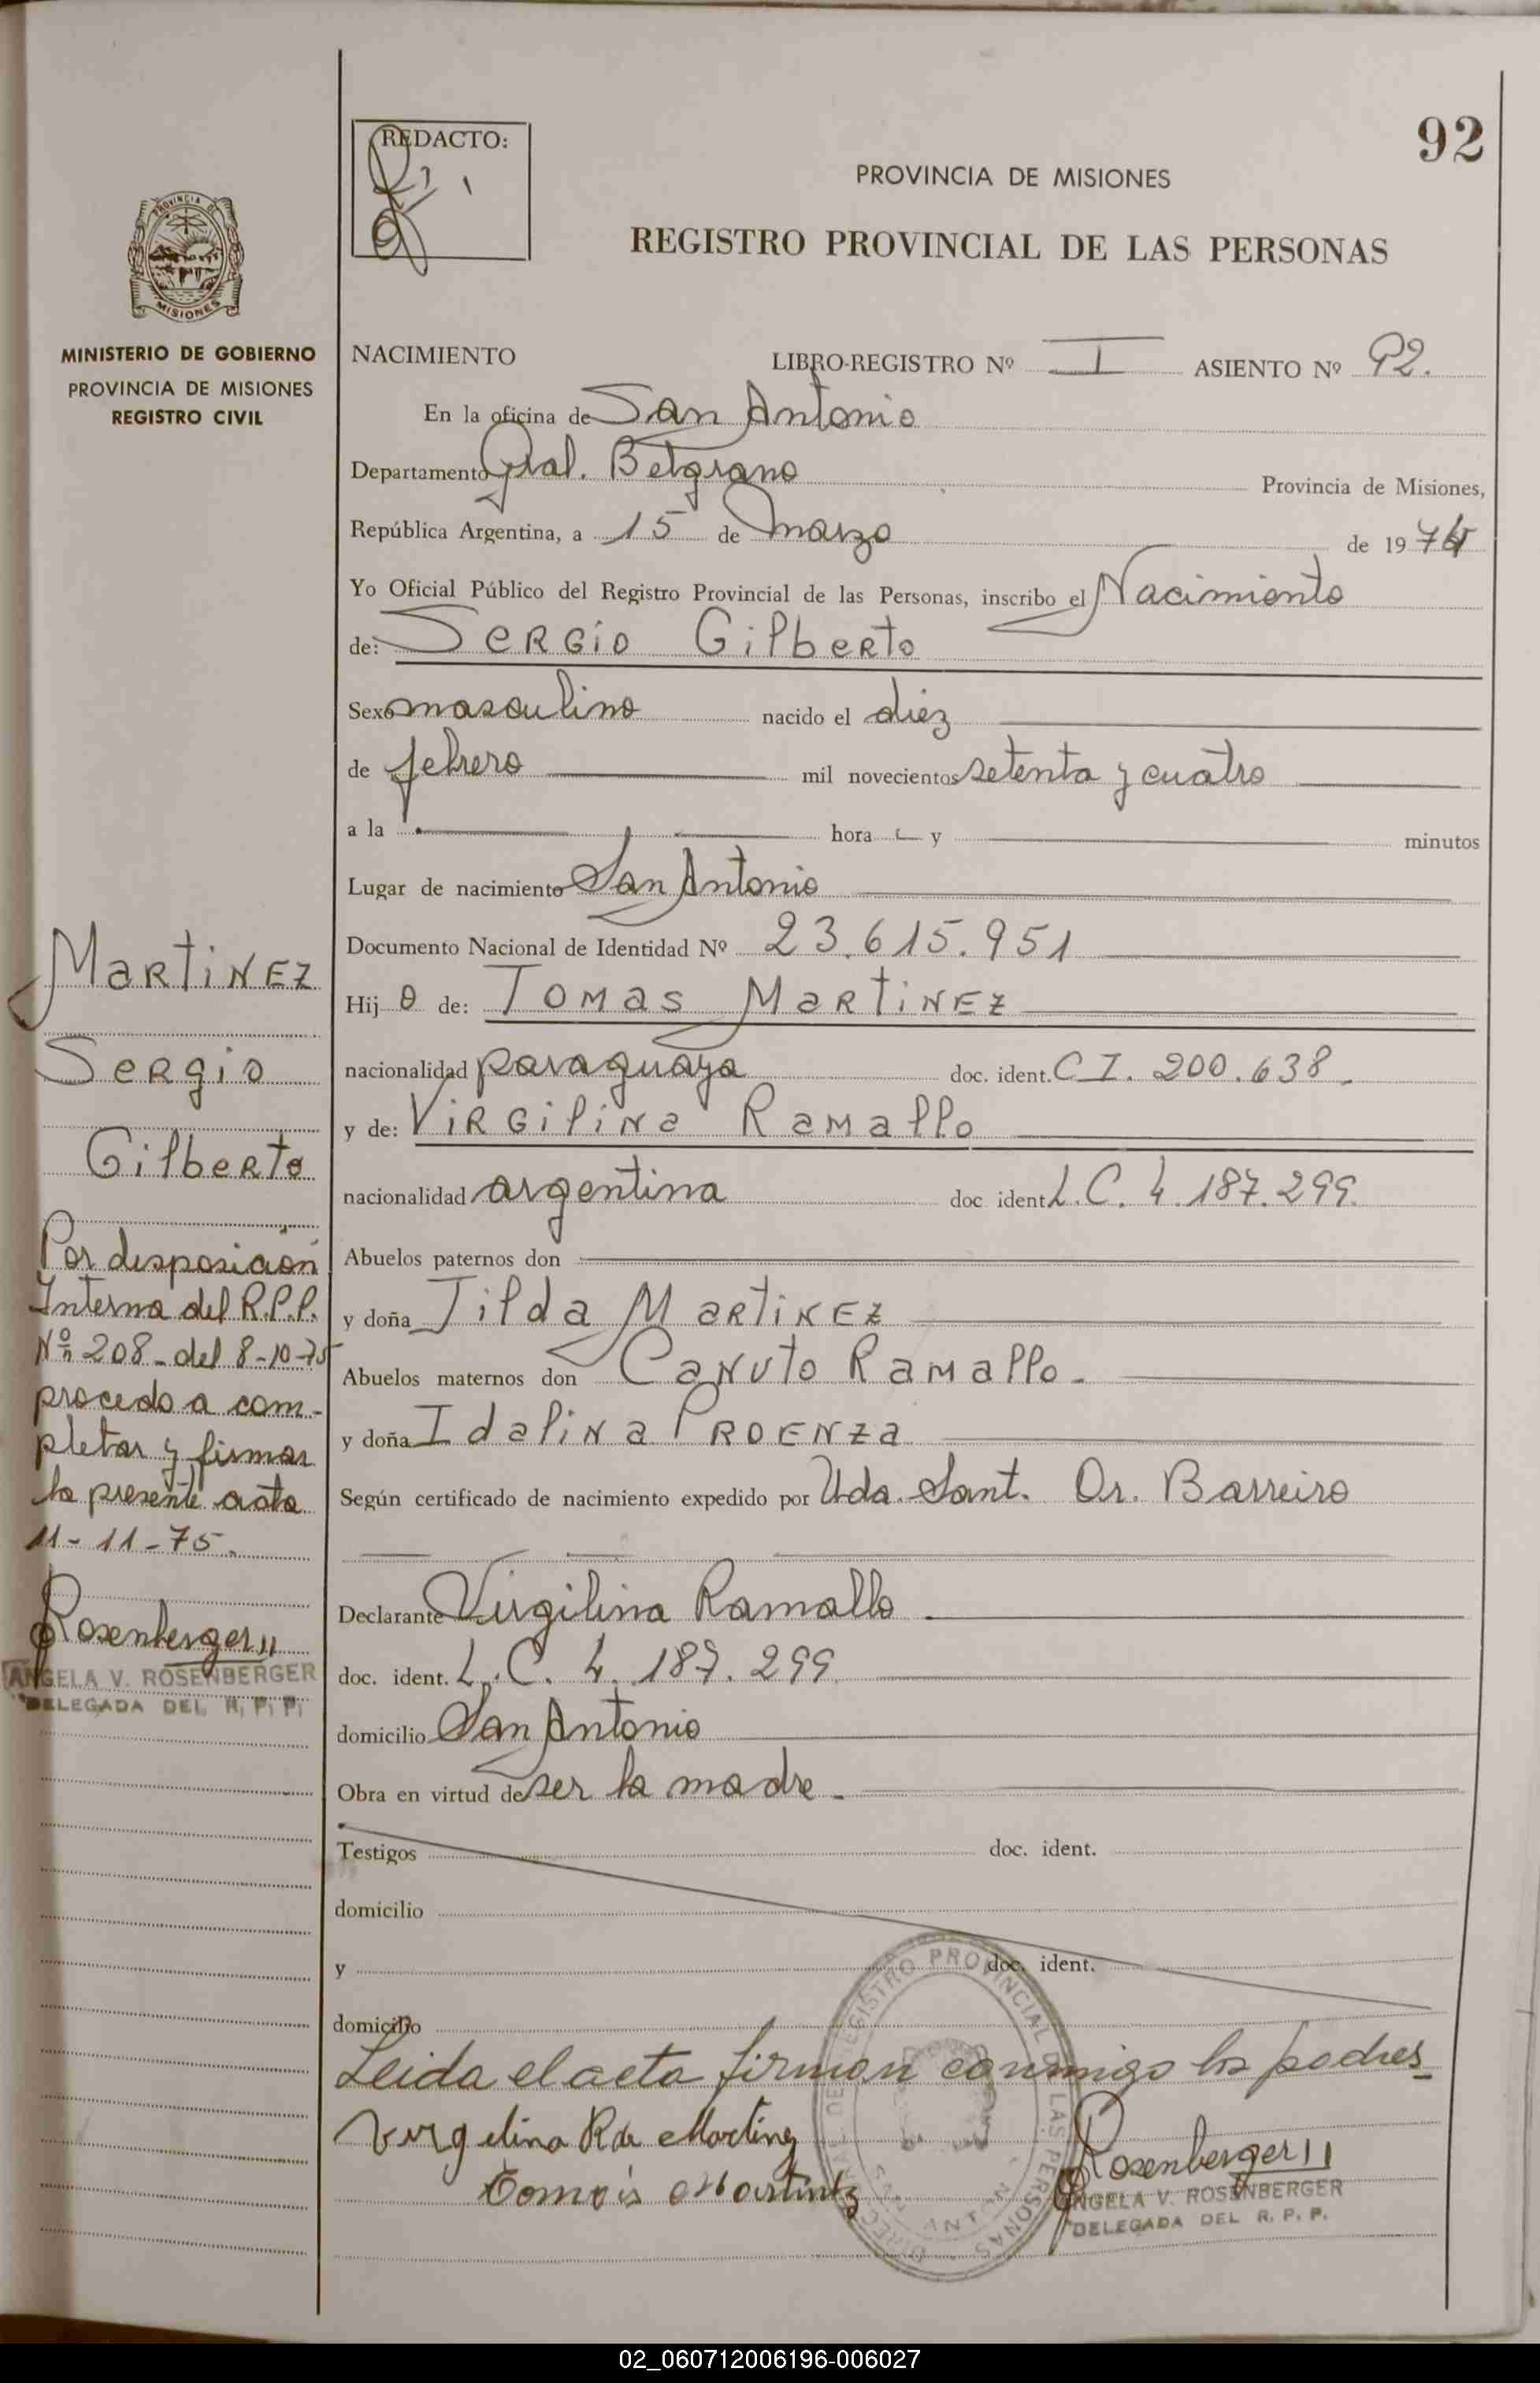 92
REDACTO:
PROVINCIA DE MISIONES
REGISTRO PROVINCIAL DE LAS PERSONAS
MINISTERIO DE GOBIERNO
PROVINCIA DE MISIONES
REGISTRO CIVIL
NACIMIENTO LIBRO-REGISTRO Nº I ASIENTO Nº 92.
En la oficina de San Antonio
Departamento Gral. Belgrano Provincia de Misiones,
República Argentina, a 15 de marzo de 1974
Yo Oficial Público del Registro Provincial de las Personas, inscribo el Nacimiento
de: Sergio Gilberto
Sexo masculino nacido el diez
de febrero mil novecientos setenta y cuatro
a la hora y minutos
Lugar de nacimiento San Antonio
Documento Nacional de Identidad Nº 23.615.951
Hijo de: Tomas Martinez
nacionalidad paraguaya doc. ident. C I. 200.638.
y de: Virgilina Ramallo
nacionalidad argentina doc ident L.C. 4.187.299.
Abuelos paternos don
y doña Jilda Martinez
Abuelos maternos don Canuto Ramallo.
y doña Idalina Proenza
Según certificado de nacimiento expedido por Uda. Sant. Dr. Barreiro
Declarante Virgilina Ramallo
doc. ident. L.C. 4.187.299
domicilio San Antonio
Obra en virtud de ser la madre.
Testigos doc. ident.
domicilio
y doc. ident.
domicilio
Leida el acta firman conmigo los padres
Virgelina R de Martinez
Tomás Martinez
Rosenberger
ANGELA V. ROSENBERGER
DELEGADA DEL R. P. P.
REGISTRO PROVINCIAL DE LAS PERSONAS
SAN ANTONIO
Martinez
Sergio
Gilberto
Por disposición
Interna del R.P.P.
Nº 208 - del 8-10-75
procedo a com-
pletar y firmar
la presente acta
11-11-75.
Rosenberger
ANGELA V. ROSENBERGER
DELEGADA DEL R. P. P.
02_060712006196-006027